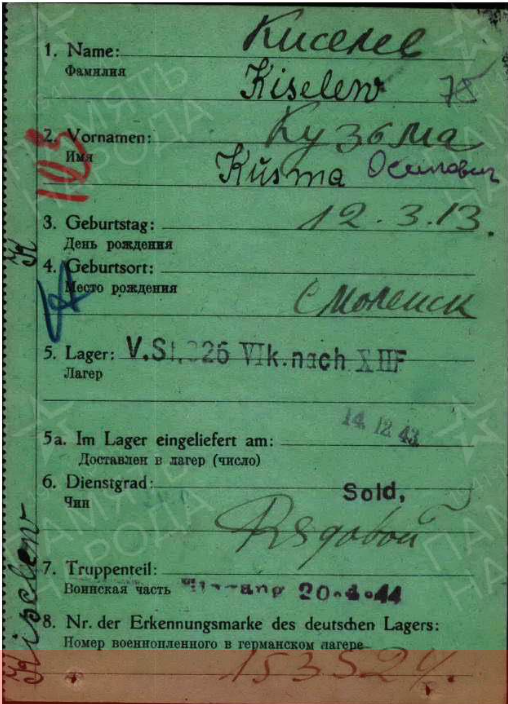 Киселев
1. Name:
Фамилия
Kiselew
75
2. Vornamen:
Кузьма
Имя
Kusma Осипович
103
3. Geburtstag: 12.3.13.
День рождения
4. Geburtsort:
Место рождения
Смоленск
5. Lager: V.St.326 VIk.nach XIIF
Лагер
14.12.43
5a. Im Lager eingeliefert am:
Доставлен в лагер (число)
6. Dienstgrad: Sold,
Чин
Рядовой
7. Truppenteil:
Воинская часть 20.4.44
8. Nr. der Erkennungsmarke des deutschen Lagers:
Номер военнопленного в германском лагере
153524.
K
Kiselew
ПАМЯТЬ НАРОДА